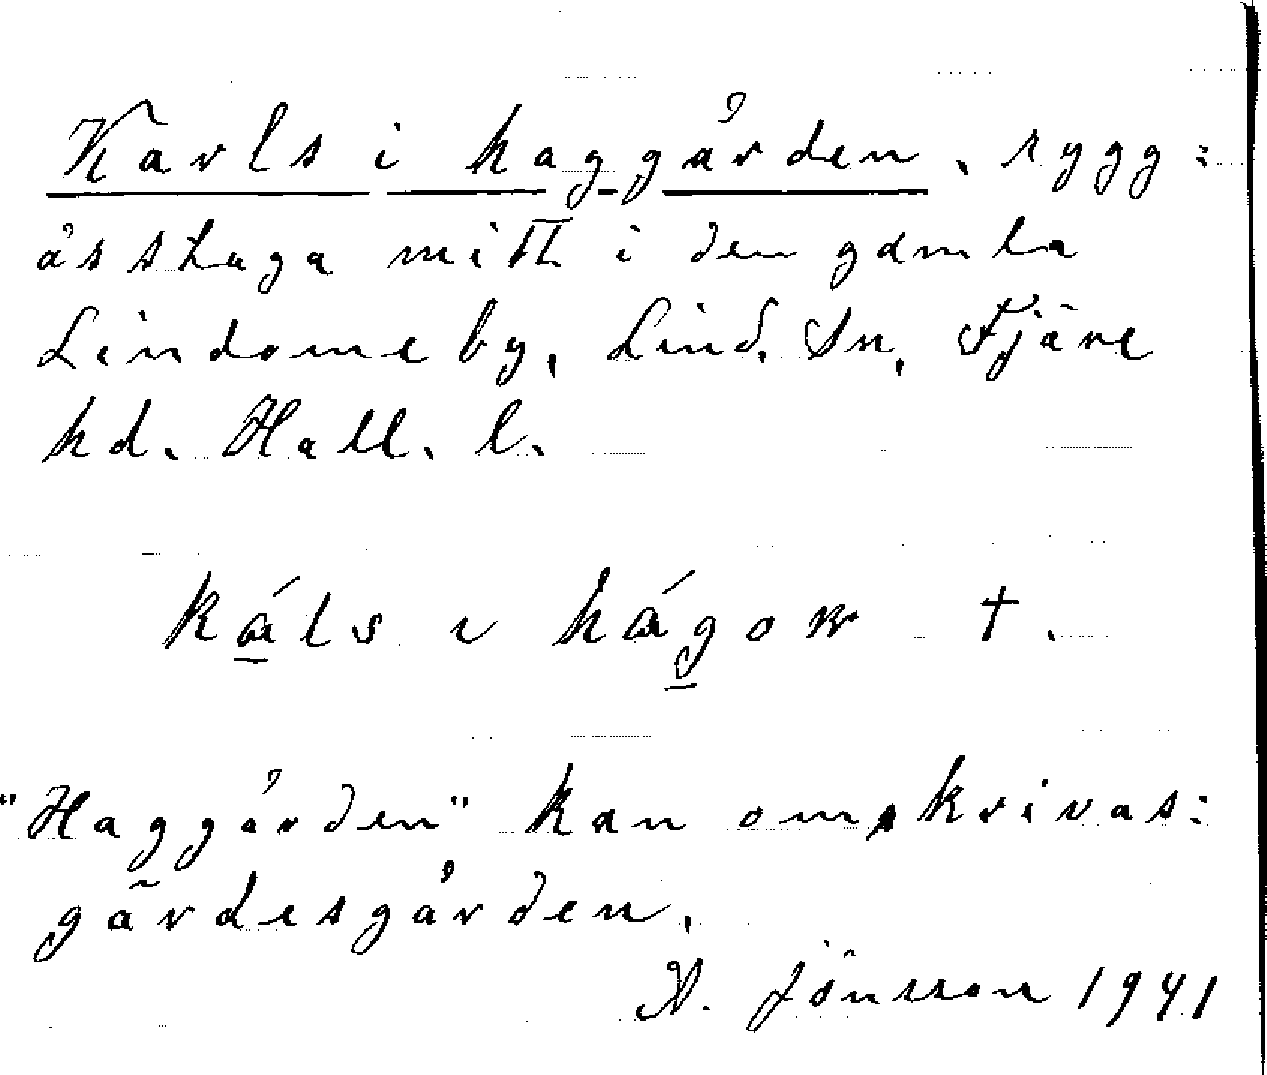 Karls i haggården, rygg:
åsstuga mitt i den gamla
Lindome by, Lind. Sn, Fjäre
hd. Hall. l.
káls i hágow †.
"Haggården" kan omskrivas:
gärdesgården.
A. Jönsson 1941